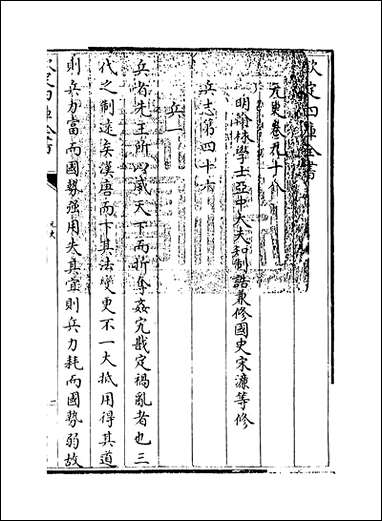 欽定四庫全書
元史卷九十八
明翰林學士亞中大夫知制誥兼修國史宋濂等修
兵志第四十六
兵一
兵者先王所以威天下而折奪姦宄戡定禍亂者也三
代之制遠矣漢唐而下其法變更不一大抵用得其道
則兵力富而國勢强用失其宜則兵力耗而國勢弱故
欽定四庫全書
元史